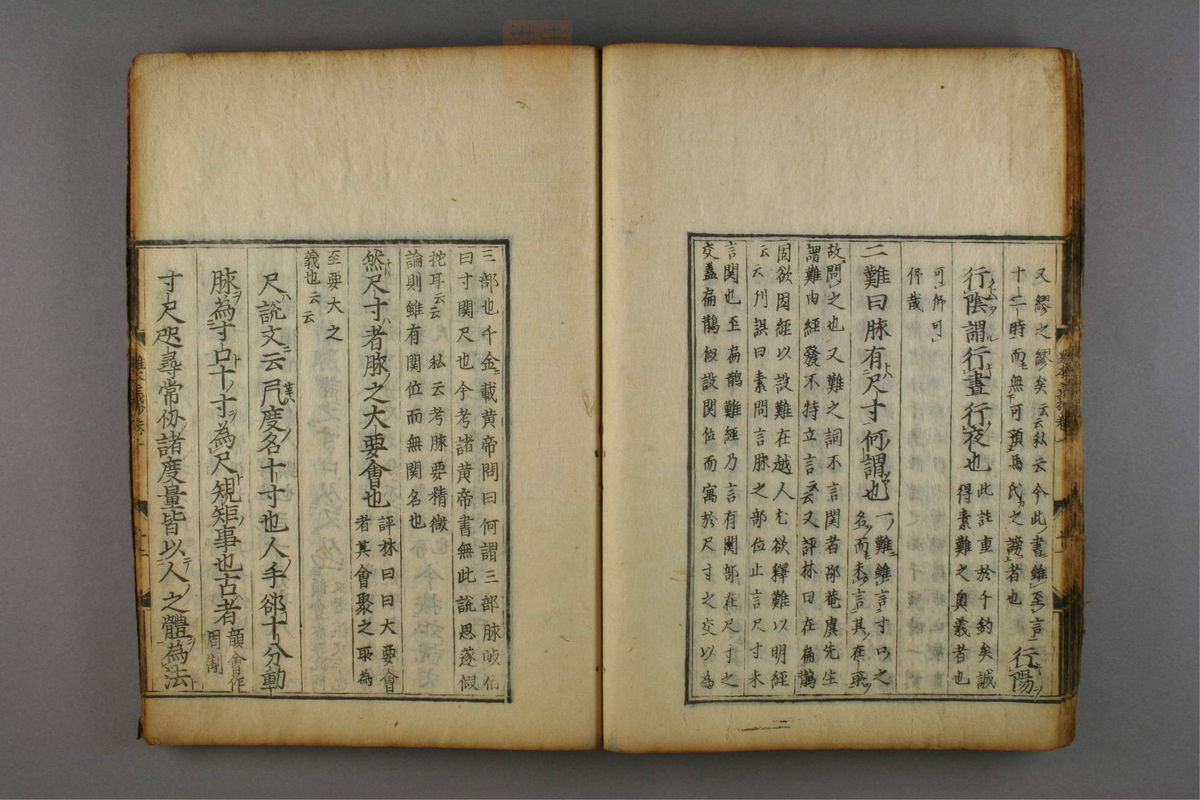 又繆之繆矣云云私云今此書雖至言
十二時而無可預馬氏之謗者也
行陽
行陰謂行晝行夜也
此註重於千鈞矣誠
得素難之奧義者也
可併可
併哉
二難曰脉有尺寸何謂也
一難雖言寸口之
名而未言其在
故問之也又難之詞不言関者邵菴虞先生
謂難由經發不特立言云云又評林曰在扁鵲
固欲因經以設難在越人尤欲釋難以明經
云云刊誤曰素問言脉之部位止言尺寸未
言関也至扁鵲難經乃言有関部在尺寸之
交蓋扁鵲假設関位而寓於尺寸之交以為
三部也千金載黄帝問曰何謂三部脉岐伯
曰寸関尺也今考諸黄帝書無此說思邈假
托耳云云私云考脉要精微
論則雖有関位而無関名也
然尺寸者脉之大要會也
評林曰曰大要會
者其會聚之最為
至要大之
義也云云
尺說文云尺度名十寸也人手郤十分動
脉為寸口十寸為尺規矩事也古者
韻會作
周制
寸尺咫尋常仭諸度量皆以人之體為法